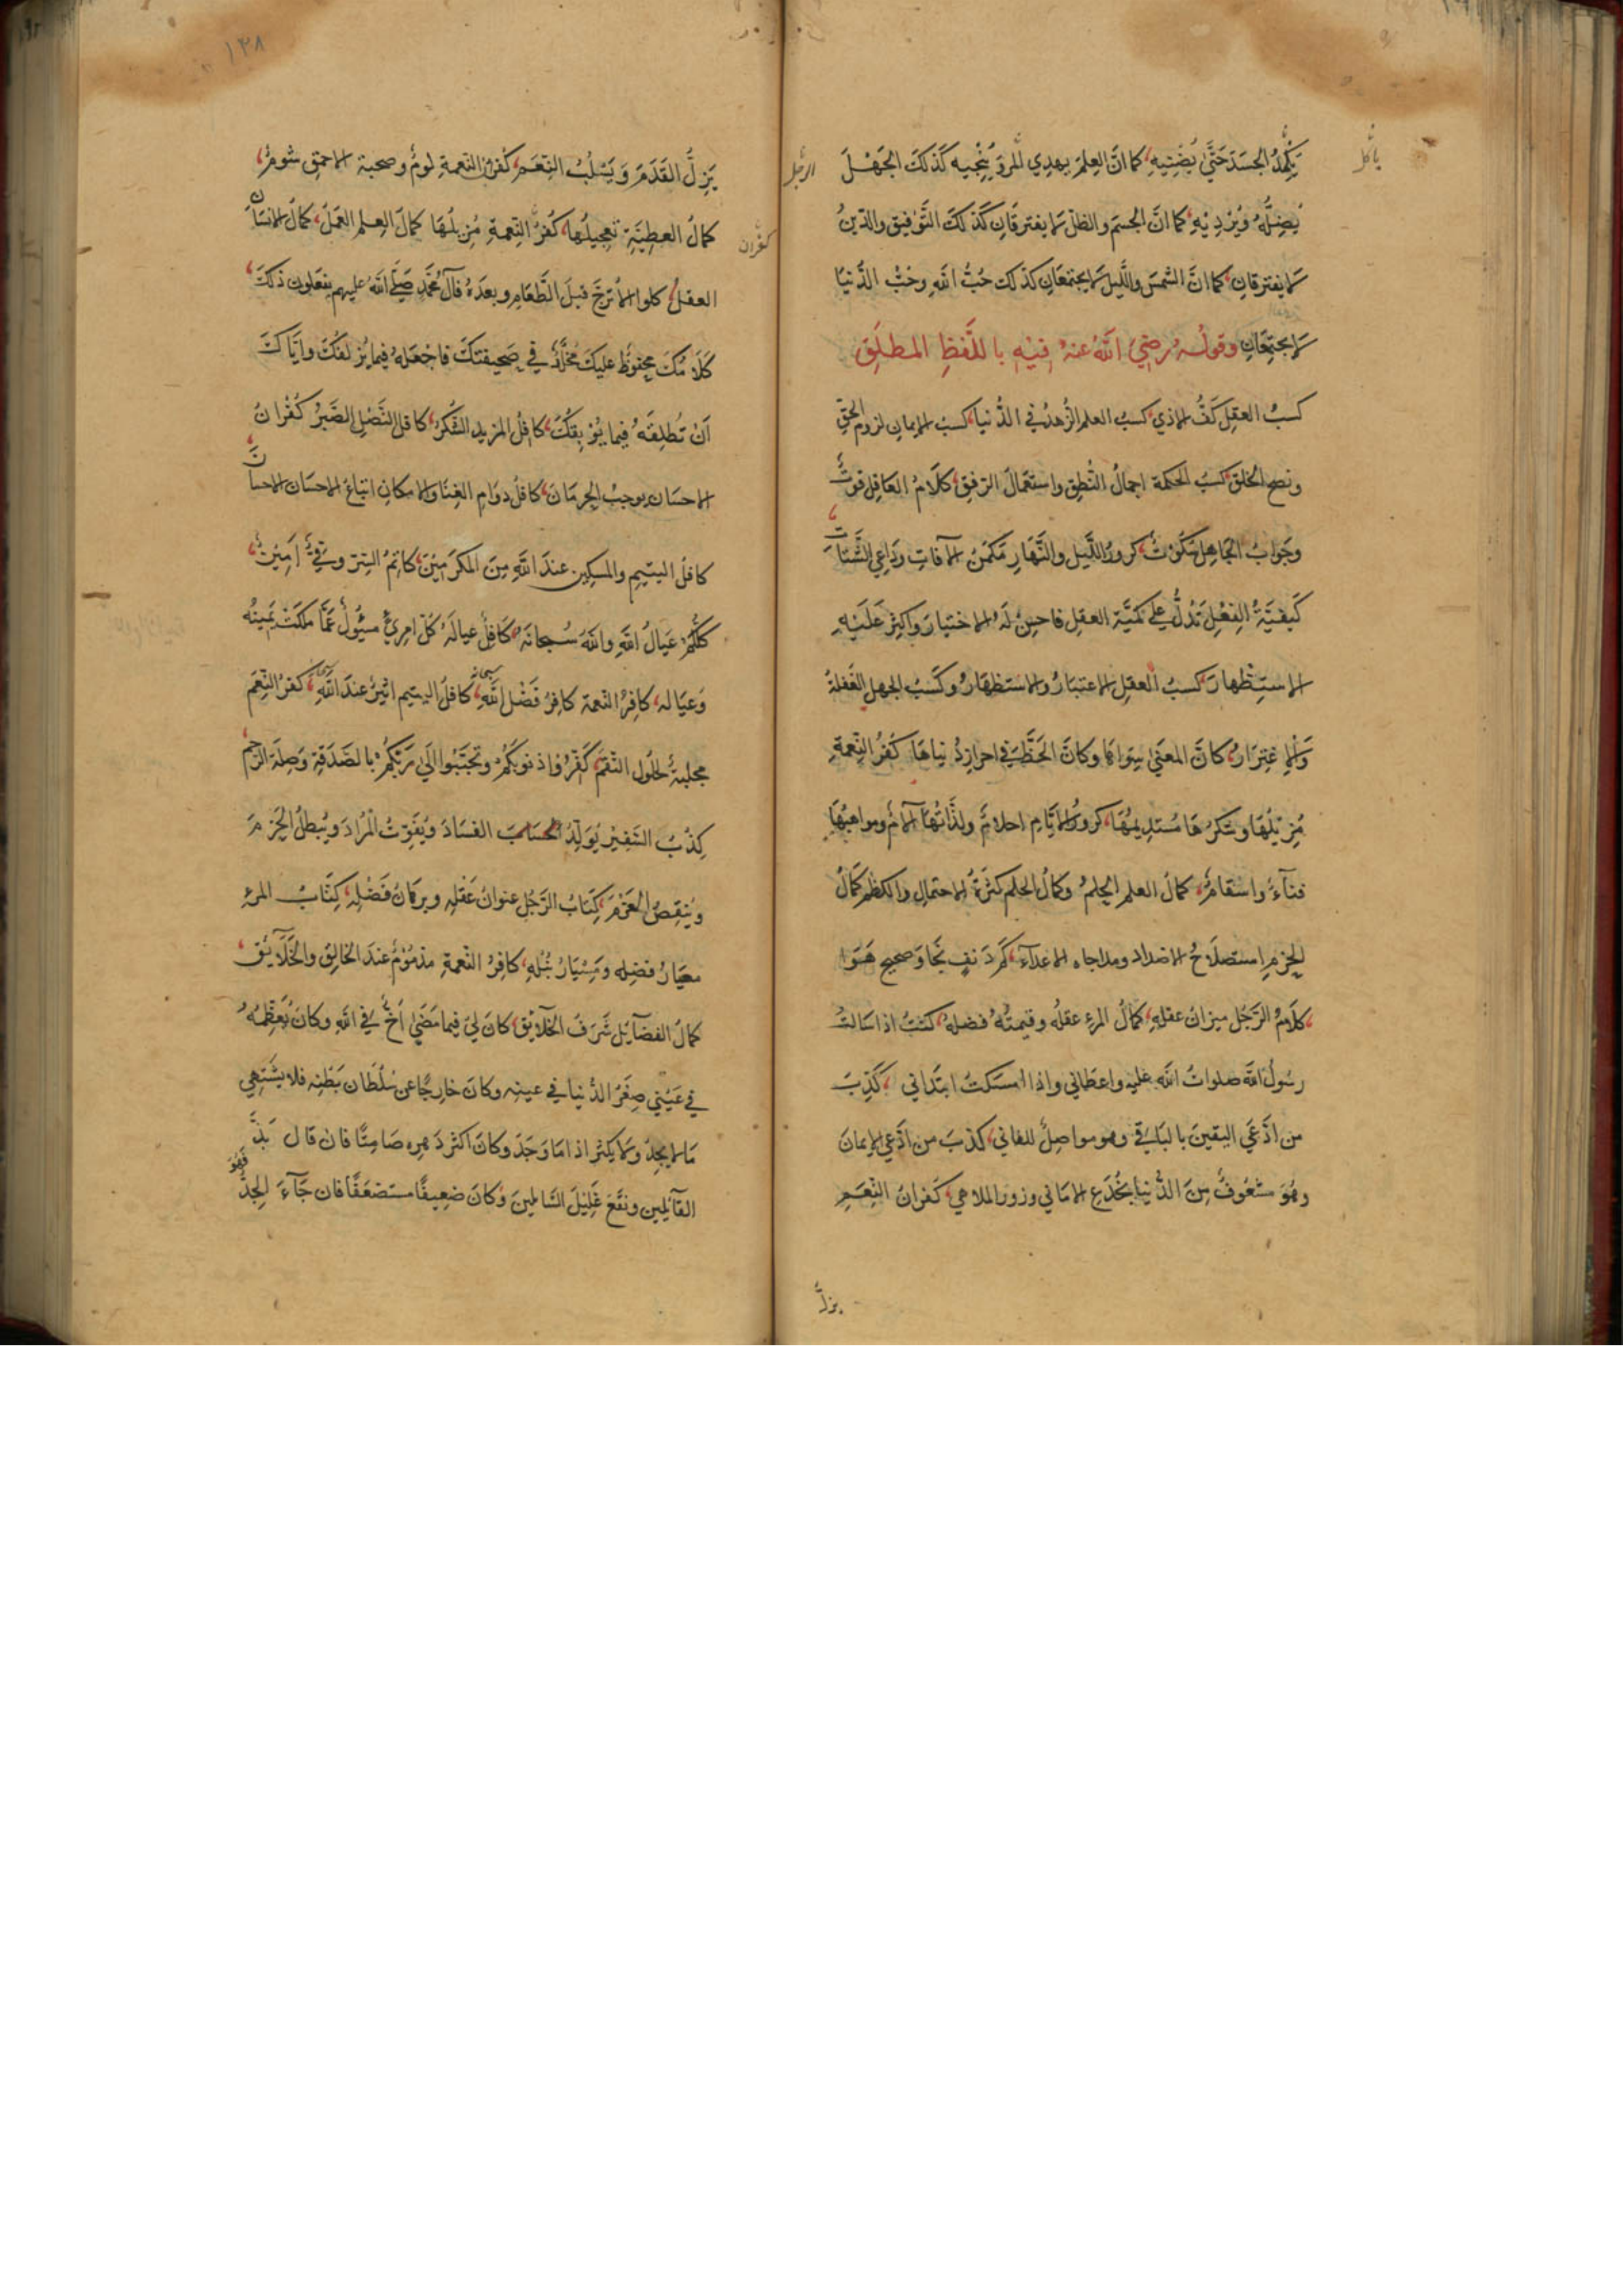 يَكْمِدُ الجَسَدَ حَتّٰى يُضْنِيهِ، كما انَّ العِلمَ يهدِي المرءَ وَيُنْجيه كَذلكَ الجَهْلَ
يُضِلُّهُ وَيُرْدِيْهِ، كما انَّ الجسمَ والظلّ لا يفترقَانِ كَذلكَ التَّوفيق والدّينُ
لا يفترقانِ، كما انَّ الشمسَ واللَّيلَ لا يجتمعَانِ كذلك حُبُّ اللّٰهِ وحُبُّ الدُّنيَا
لا يجتمِعَانِ وقولُهُ رَضِيَ اللّٰهُ عنهُ فيْهِ باللَّفظِ المطلَقِ
كسبُ العقلِ كَفُّ الاذي، كسبُ العلم الزُّهدُ في الدُّنيا، كسبُ الايمانِ لزوم الحقِّ
ونصح الخلقِ، كسبُ الحكمة اجمالُ النُّطقِ واستعمالُ الرّفقِ، كلَامُ العَاقِلِ قوتٌ
وجَوَابُ الجَاهِلِ سُكُوْتٌ، كرورُ اللَّيلِ والنَّهَارِ مَكمَنُ الآفاتِ ودَاعِي الشَّتَاتِ
كَيفيَّةُ الفِعْلِ تَدُلُّ علي كَمّيَّة العقلِ فاحسِنْ لَهُ الاختيارَ واكثِرْ عَلَيْهِ
الاسْتِظْهارَ، كسبُ العقلِ الاعتبَارُ والاستظهَارُ وكَسْبُ الجهلِ الغَفلةُ
وَالِاغتِرَارُ، كانَ المعنِيَّ سِوَاهَا وكانَّ الحَظَّ في احرازِ دُنياهَا، كُفرُ النِّعمةِ
مُزيلُهَا وشكرُهَا مُسْتَدِيمُهَا، كرورُ الايَّامِ احلامٌ ولذَّاتُهَا آلامٌ ومواهبُهَا
فَنآءٌ واسقامٌ، كمالُ العلمِ الحِلمُ وكمالُ الحلم كثرَةُ الاحتمالِ والكظم، كَمَالُ
الحزمِ استصلَاحُ الاضداد ومداجاه الاعدَآءِ، كَم دَنفٍ نَجَا وَصحيحٍ هَوٰا
كلَامُ الرَّجُلِ ميزانُ عقلِهِ، كمالُ المرءِ عقلُه وقيمتُهُ فضلهُ، كُنْتُ اذا سَالتُ
رسُولَ اللّٰهِ صلواتُ اللّٰهِ عليه واعطَاني واذا امسكتُ ابتدَاني، كَذِبَ
من ادَّعَي اليقينَ بالبَاقي وهو مواصِلٌ للفاني، كذبَ من ادَّعي الايمانَ
وهُوَ مشعُوفٌ مِنَ الدُّنيا بخُدَعِ الامَاني وزور الملاهي، كفرانُ النِّعَمِ
يزلُّ
الرجل
يَزِلُّ القَدَمَ وَيَسْلُبُ النِّعَمَ، كُفرانُ النّعمةِ لومٌ وصحبة الاحمقِ شومٌ،
كمالُ العطيَّةِ تعجيلُهَا، كُفرُ النِّعمةِ مُزيلُهَا كمالُ العِلمِ العَمَلُ، كمالُ الانسَانِ
كفران
العقلُ، كلوا الاُترجَّ قبلَ الطَّعَامِ وبعدَهُ فآلُ مُحَمَّدٍ صَلَّى اللّٰهُ عليهم يفعَلون ذلكَ،
كَلَامُكَ محفوظٌ عليكَ مُخَلَّدٌ في صَحيفتكَ فاجعَلهُ فيما يُزلفكَ وايَّاكَ
اَنْ تُطلِقَهُ فِيما يُوْبِقكَ، كافِلُ المزيدِ الشكرُ، كافلُ النَّصْرِ الصَّبْرُ، كُفْرانُ
الاحسَانِ يوجبُ الحِرمَانَ، كافلُ دوَام الغِنَا والامكانِ اتباعُ الاحسَانِ الاحسَانَ
كافلُ اليتيمِ والمسكين عندَ اللّٰهِ مِنَ المكرَمِيْنَ، كاتمُ السِّرِّ وَفيٌّ اَمِيْنٌ،
كلُّكمْ عيَالُ اللّٰهِ واللّٰهُ سُبحانَهُ كافِلُ عيالَهُ، كلّ امرِئٍ مسئُولٌ عَمَّا ملكَتْ يَمينُه
وَعيَاله، كافِرُ النّعمة كافِرُ فَضْلِ اللّٰهِ، كافلُ اليتيم اثيرٌ عندَ اللّٰهِ، كفرُ النِّعَمِ
مجلبةٌ لحلُولِ النّقم، كَفِّرُوا ذنوبَكُمْ وتحبَّبُوا الَي رَبّكُمْ بالصَّدَقَةِ وَصِلَةِ الرَّحِمِ،
كِذْبُ السَّفِيْرِ يُوَلِّدُ الفسَادَ ويُفَوّتُ المُرادَ ويُبطلُ الحَزمَ
ويُنقِصُ العَزْمَ، كِتَابُ الرَّجُلِ عنوانُ عَقْلِهِ وبرهَانُ فَضْلِهِ، كِتَابُ المرءِ
معيَارُ فضلِه وَمِسْبَارُ نُبُلِهِ، كافِرُ النّعمةِ مذمُوْمٌ عندَ الخالِقِ والخَلَآئقِ،
كمالُ الفضآئلِ شَرَفُ الخَلآئقِ، كانَ لي فيما مَضَى اَخٌ في اللّٰهِ وكانَ يُعَظِّمُهُ
في عَيْنِي صِغَرُ الدُّنيا في عينِه وكانَ خارِجًا عن سُلْطَانِ بَطْنِه فلا يشتَهِي
مَا لا يجِدُ ولا يكثر اذا مَا وَجَدَ وكانَ اكثرَ دَهرِه صَامِتًا فان قال بَذَّ
القآئلين ونقَعَ غَلِيْلَ السَّائلينَ وَكانَ ضعِيفًا مستضعَفًا فان جَآءَ الجِدُّ فَهُوَ
١٣٨